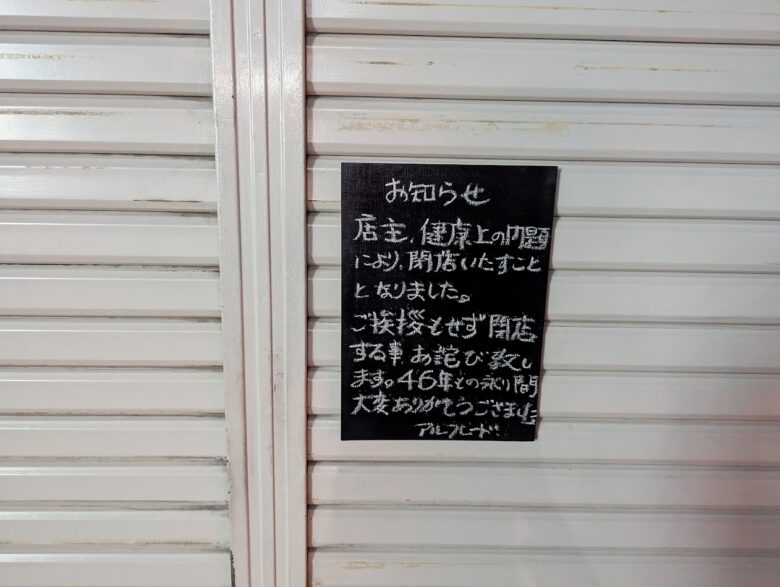 お知らせ
店主、健康上の問題
により、閉店いたすこと
となりました。
ご挨拶もせず閉店
する事お詫び致し
ます。46年もの永り間
大変ありがとうございました
アルフレード